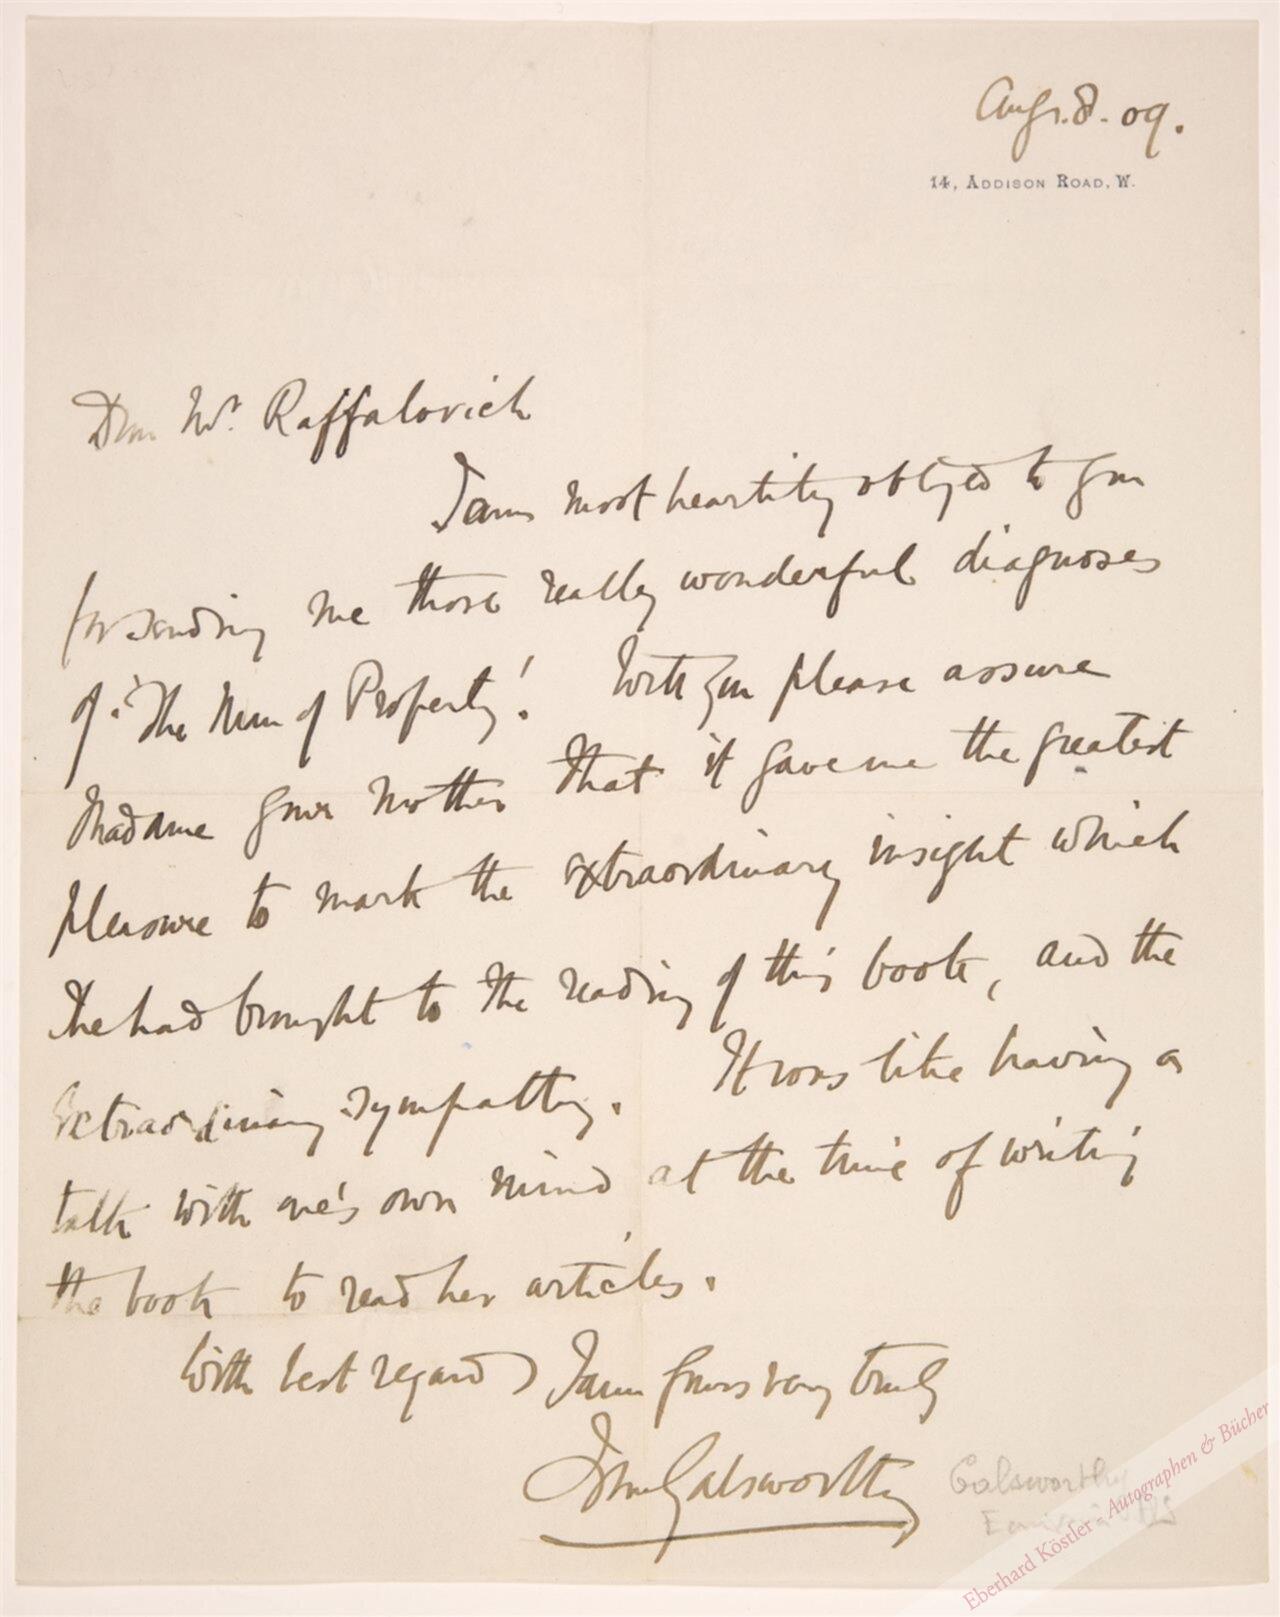 Aug. 8. 09.
14, ADDISON ROAD, W.
Dear Mr. Raffalovich
I am most heartily obliged to you
for sending me those really wonderful diagnoses
of 'The Man of Property'! Will you please assure
Madame your mother that it gave me the greatest
pleasure to mark the extraordinary insight which
she had brought to the reading of this book, and the
extraordinary sympathy. It was like having a
talk with one's own mind at the time of writing
the book to read her articles.
With best regards I am yours very truly
John Galsworthy
Galsworthy
Eberhard Köstler - Autographen & Bücher